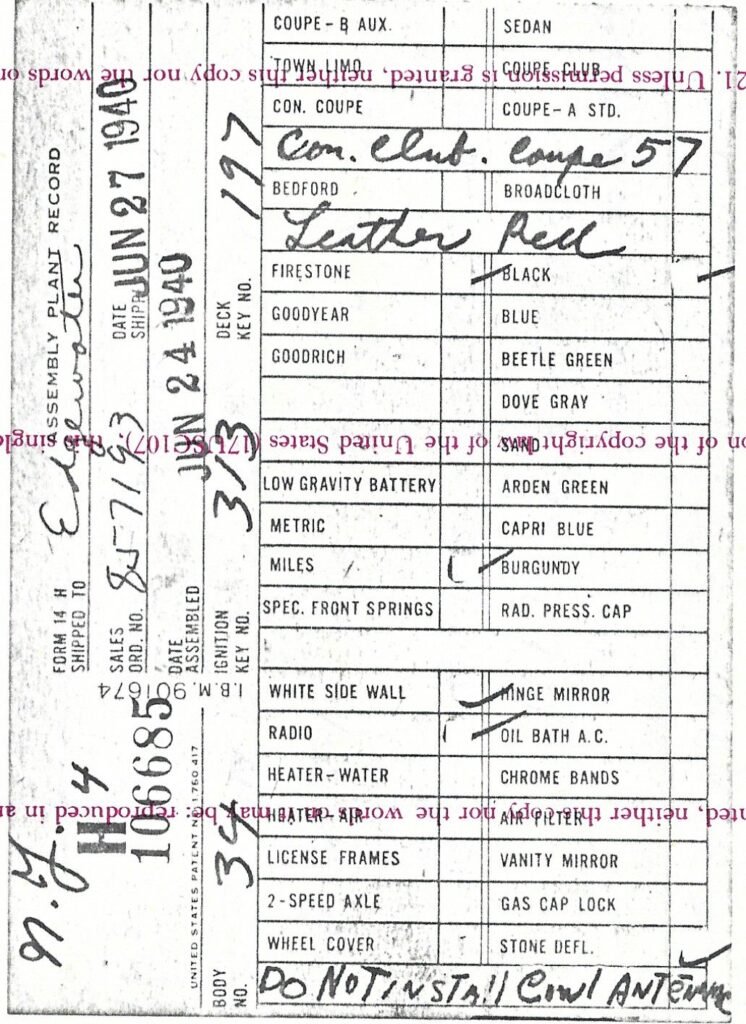 COUPE-B AUX. SEDAN
TOWN LIMO. COUPE CLUB
CON. COUPE COUPE-A STD.
Con. Club. Coupe 57
BEDFORD BROADCLOTH
Leather Red
FIRESTONE BLACK
GOODYEAR BLUE
GOODRICH BEETLE GREEN
DOVE GRAY
SAND
LOW GRAVITY BATTERY ARDEN GREEN
METRIC CAPRI BLUE
MILES BURGUNDY
SPEC. FRONT SPRINGS RAD. PRESS. CAP
WHITE SIDE WALL HINGE MIRROR
RADIO OIL BATH A.C.
HEATER-WATER CHROME BANDS
HEATER-AIR AIR FILTER
LICENSE FRAMES VANITY MIRROR
2-SPEED AXLE GAS CAP LOCK
WHEEL COVER STONE DEFL.
DO NOT install Cowl ANTENNAE
FORM 14 H ASSEMBLY PLANT RECORD
SHIPPED TO Edgewater
N.Y. 4
SALES ORD. NO. 85-7193
DATE SHIPP JUN 27 1940
H
106685
I.B.M. 901674
DATE ASSEMBLED JUN 24 1940
UNITED STATES PATENT NO. 1,760,417
BODY NO. 34
IGNITION KEY NO. 313
DECK KEY NO. 197
21. Unless permission is granted, neither this copy nor the words or
on of the copyright law of the United States (17USC107). this single
nted, neither this copy nor the words on it may be reproduced in an